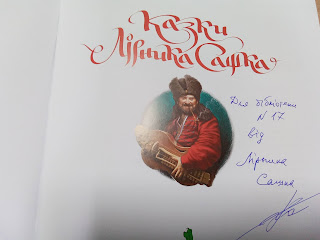 Казки
Лірника Сашка
Для бібліотеки
N 17
від
Лірника
Сашка